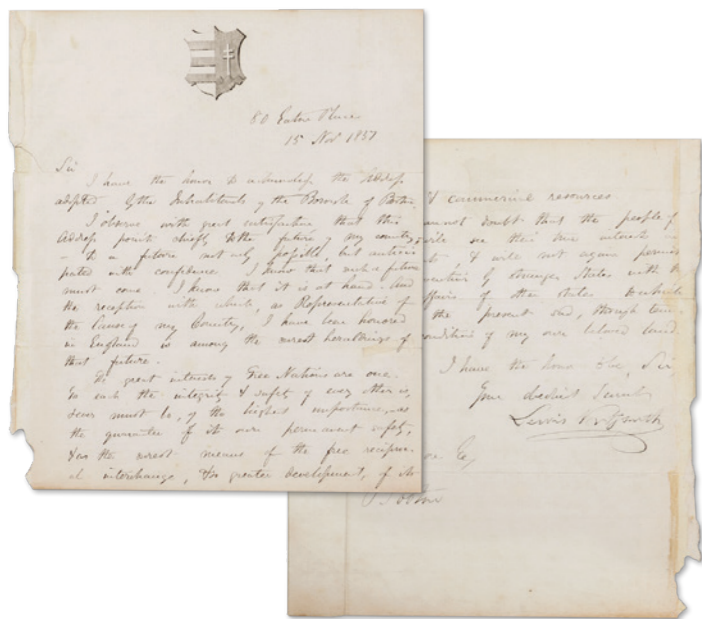 80 Eaton Place
15 Nov 1851
Sir
I have the honor to acknowledge the Address
adopted by the Inhabitants of the Borough of Boston.
I observe with great satisfaction that this
Address points chiefly to the future of my country,
– to a future not only possible, but antici
pated with confidence. I know that such a future
must come. I know that it is at hand. And
the reception with which, as Representative of
the Cause of my Country, I have been honored
in England is among the surest heraldings of
that future.
The great interests of Free Nations are one.
To each the integrity & safety of every other is,
must be, of the highest importance, as
the guarantee of its own permanent safety,
& as the surest means of the free recipro
al interchange, & the greater development, of its
& commercial resources
cannot doubt that the people of
will see their true interests in
& will not again permit
by stranger States with the
affairs of other states to
the present sad, though
condition of my own beloved land.
I have the honor to be, Sir,
Your obedient Servant
Esq,
Boston